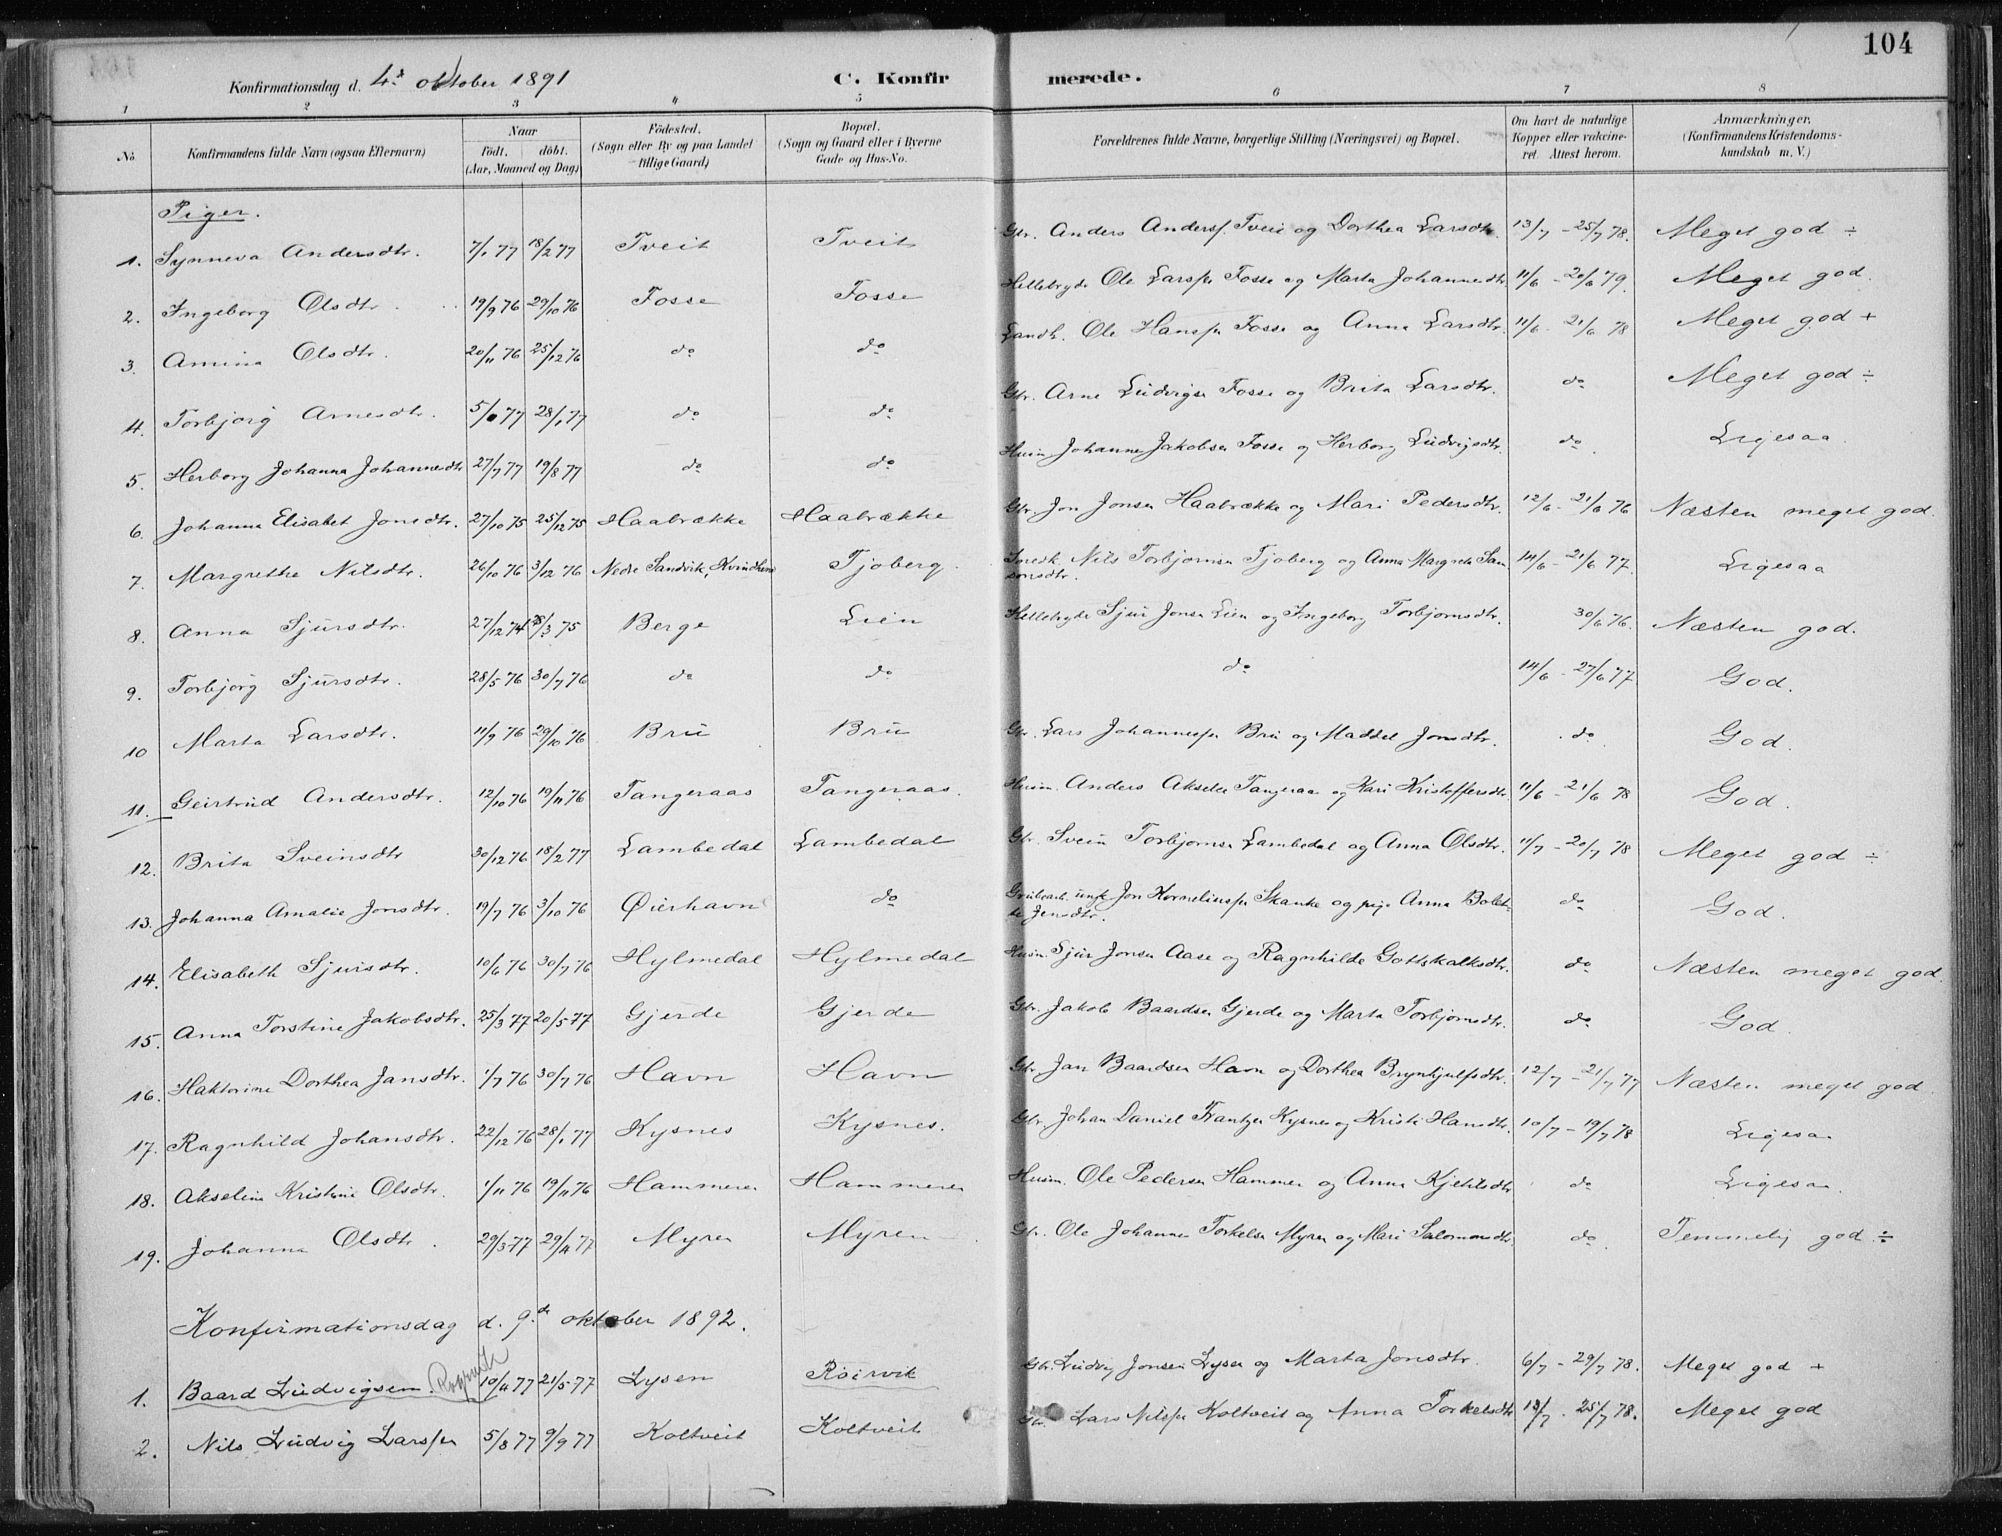 104
Konfirmationsdag d. 4de oktober 1891 C. Konfirmerede.
1 2 3 4 5 6 7 8
No. Konfirmandens fulde Navn (ogsaa Efternavn) Naar födt. döbt. (Aar, Maaned og Dag) Födested. (Sogn eller By og paa Landet tillige Gaard) Bopæl. (Sogn og Gaard eller i Byerne Gade og Hus-No. Forældrenes fulde Navne, borgerlige Stilling (Næringsvei) og Bopæl. Om havt de naturlige Kopper eller vakcineret. Attest herom. Anmærkninger. (Konfirmandens Kristendomskundskab m. V.)
Piger.
1. Synneva Andersdtr. 7/1 77 18/2 77 Tveit Tveit Gbr. Anders Anders. Tveit og Dorthea Larsdtr. 13/7 - 25/7 78. Meget god ÷
2. Ingeborg Olsdtr. 19/9 76 29/10 76 Fosse Fosse Ole Larssen Fosse og Marta Johannesdtr 11/6 - 20/6 79. Meget god.
3. Amina Olsdtr. 20/11 76 25/12 76 do do Landh. Ole Hanssen Fosse og Anna Larsdtr. 11/6 - 21/6 78 Meget god +
4. Torbjörg Arnesdtr. 5/1 77 28/1 77 do do Gbr. Arne Ludvigsen Fosse og Brita Larsdtr. do Meget god ÷
5. Herborg Johanna Johannesdtr 27/7 77 19/8 77 do do Husm. Johannes Jakobsen Fosse og Herborg Ludvigsdtr. do Ligesaa.
6. Johanna Elisabet Jonsdtr. 27/10 75 25/12 75 Haabrække Haabrække Gbr. Jon Jonsen Haabrække og Mari Pedersdtr. 12/6 - 21/6 76 Næsten meget god.
7. Margrethe Nilsdtr. 26/10 76 3/12 76 Nedre Sandvik, Kvindherred Tjoberg. Nils Torbjörnsen Tjoberg og Anna Margreta Samsonsdtr. 14/6 - 21/6 77. Ligesaa
8. Anna Sjursdtr. 27/12 74 28/3 75 Berge Lien Sjur Jonsen Lien og Ingeborg Torbjornsdtr. 30/6 76. Næsten god.
9. Torbjörg Sjursdtr. 28/5 76 30/7 76 do do do 14/6 - 27/6 77 God.
10 Marta Larsdtr. 11/9 76 29/10 76 Bru Bru Gbr. Lars Johannessen Bru og Maddel Jonsdtr. do God.
11. Geirtrud Andersdtr. 12/10 76 19/11 76 Tangeraas Tangeraas. Husm. Anders Akselsen Tangeraas og Kari Kristoffersdtr. 11/6 - 21/6 78 God.
12. Brita Sveinsdtr 30/12 76 18/2 77 Lambedal Lambedal Gbr. Svein Torbjornsen Lambedal og Anna Olsdtr. 11/7 - 20/7 78 Meget god ÷
13. Johanna Amalie Jonsdtr. 19/7 76 3/10 76 Øierhavn do Grubearb. ungk Jon Korneliussen Skanke og pige Anna Bolette Jensdtr. do God.
14. Elisabeth Sjursdtr. 10/6 76 30/7 76 Hylmedal Hylmedal Husm. Sjur Jonsen Aase og Ragnhilde Gottskalksdtr. do Næsten meget god.
15. Anna Torstine Jakobsdtr. 25/3 77 20/5 77 Gjerde Gjerde Gbr. Jakob Baardsen Gjerde og Marta Torbjornsdtr. do God.
16. Haktorine Dorthea Jansdtr. 1/7 76 30/7 76 Havn Havn Gbr. Jan Baardsen Havn og Dorthea Brynhjulfsdtr. 12/7 - 21/7 77 Næsten meget god
17. Ragnhild Johansdtr. 22/12 76 28/1 77 Kysnes Kysnes. Gbr. Johan Daniel Frantzen Kysnes og Kristi Hansdtr. 10/7 - 19/7 78 Ligesaa
18. Akseline Kristine Olsdtr. 1/11 76 19/11 76 Hammeren Hammeren Husm. Ole Pedersen Hammer og Anna Kjetilsdtr do Ligesaa.
19. Johanna Olsdtr. 29/3 77 29/4 77 Myren Myren Gbr. Ole Johannes Torkelsen Myren og Mari Salomonsdtr. do Temmelig god ÷
Konfirmationsdag d. 9de oktober 1892.
1. Baard Ludvigsen. 10/4 77 21/5 77 Lysen Röirvik Gbr. Ludvig Jonsen Lysen og Marta Jonsdtr. 6/7 - 29/7 78. Meget god +
2. Nils Ludvig Larssen 5/8 77 9/9 77 Koltveit Koltveit Gbr. Lars Nilssen Koltveit og Anna Torkelsdtr 13/7 - 25/7 78. Meget god